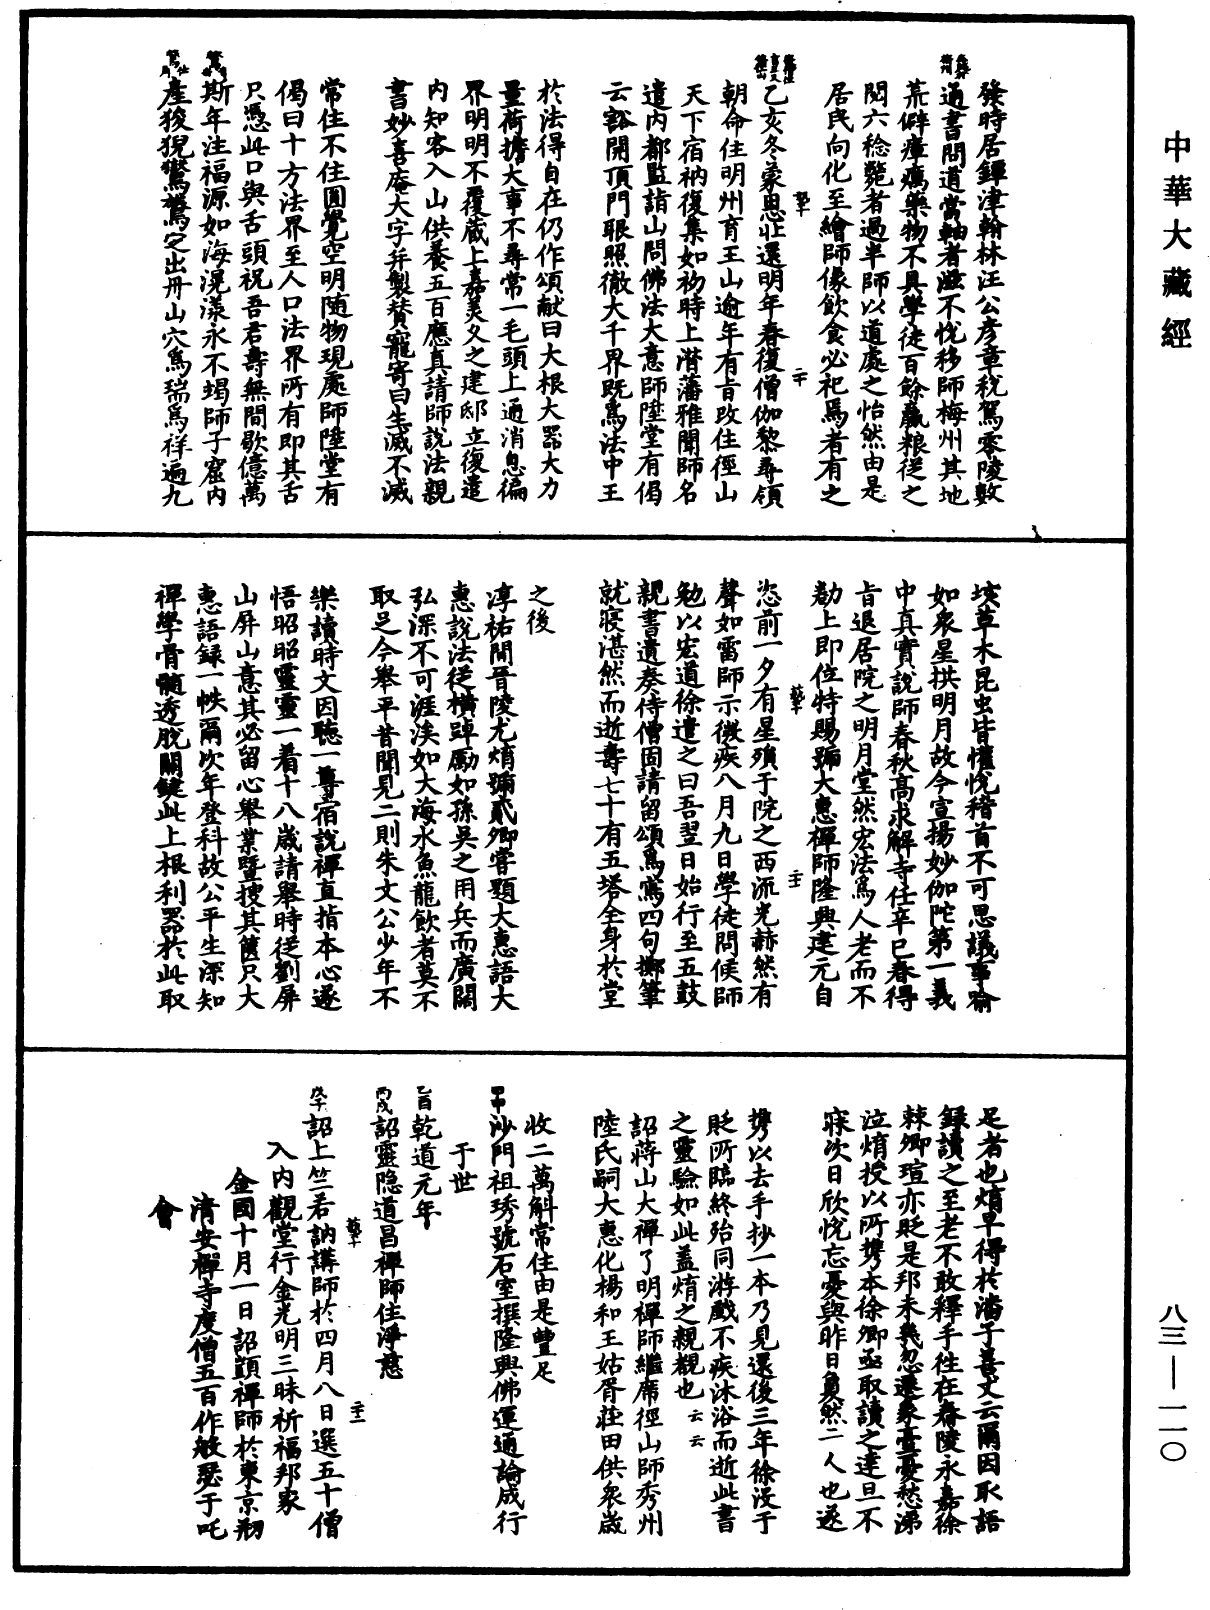 中華大藏經
發時居鐔津翰林汪公彦章稅駕零陵數
通書問道當軸者滋不悅移師梅州其地
荒僻瘴癘藥物不具學徒百餘羸粮從之
閱六稔斃者過半師以道處之怡然由是
居民向化至繪師像飲食必祀焉者有之
乙亥冬蒙恩北還明年春復僧伽黎尋領
朝命住明州育王山逾年有旨改住徑山
天下宿衲復集如初時上潛藩雅聞師名
遣內都監詣山問佛法大意師陞堂有偈
云豁開頂門眼照徹大千界既爲法中王
於法得自在仍作頌獻曰大根大器大力
量荷擔大事不尋常一毛頭上通消息徧
界明明不覆藏上嘉美久之建邸立復遣
內知客入山供養五百應真請師說法親
書妙喜庵大字幷製賛寵寄曰生滅不滅
常住不住圓覺空明随物現處師陞堂有
偈曰十方法界至人口法界所有即其舌
只憑此口與舌頭祝吾君壽無間歇億萬
斯年注福源如海滉漾永不竭師子窟內
產狻猊鸑鷟定出丹山穴爲瑞爲祥遍九
垓草木昆虫皆懽悅稽首不可思議事喻
如衆星拱明月故今宣揚妙伽陀第一義
中真實說師春秋高求解寺任辛巳春得
旨退居院之明月堂然宏法爲人老而不
勌上即位特賜號大惠禪師隆興建元自
恣前一夕有星殞于院之西流光赫然有
聲如雷師示微疾八月九日學徒問候師
勉以宏道徐遣之曰吾翌日始行至五鼓
親書遺奏侍僧固請留頌爲寫四句擲筆
就寢湛然而逝壽七十有五塔全身於堂
之後
淳祐間晉陵尤焴號貳卿嘗題大惠語大
惠說法從橫踔厲如孫吳之用兵而廣闊
弘深不可涯涘如大海水魚龍飲者莫不
取足今舉平昔聞見二則朱文公少年不
樂讀時文因聽一尊宿說禪直指本心遂
悟昭昭靈靈一着十八歲請舉時從劉屏
山屏山意其必留心舉業暨搜其篋只大
惠語録一帙爾次年登科故公平生深知
禪學骨髓透脫關鍵此上根利器於此取
足者也焴早得於潘子善丈云爾因取語
録讀之至老不敢釋手徃在春陵永嘉徐
棘卿瑄亦貶是邦未幾忽遷象臺憂愁涕
泣焴授以所携本徐卿亟取讀之達旦不
寐次日欣悅忘憂與昨日夐然二人也遂
携以去手抄一本乃見還後三年徐没于
貶所臨終殆同游戲不疾沐浴而逝此書
之靈驗如此盖焴之親覩也云云
詔蔣山大禪了明禪師繼席徑山師秀州
陸氏嗣大惠化楊和王姑胥莊田供衆歲
收二萬斛常住由是豐足
甲申沙門祖琇號石室撰隆興佛運通論成行
于世
乙酉乾道元年
丙戌詔靈隐道昌禪師住淨慈
戊子詔上竺若訥講師於四月八日選五十僧
入內觀堂行金光明三昧祈福邦家
金國十月一日詔顗禪師於東京剏
清安禪寺度僧五百作般瑟于吒
會
八三—一一〇